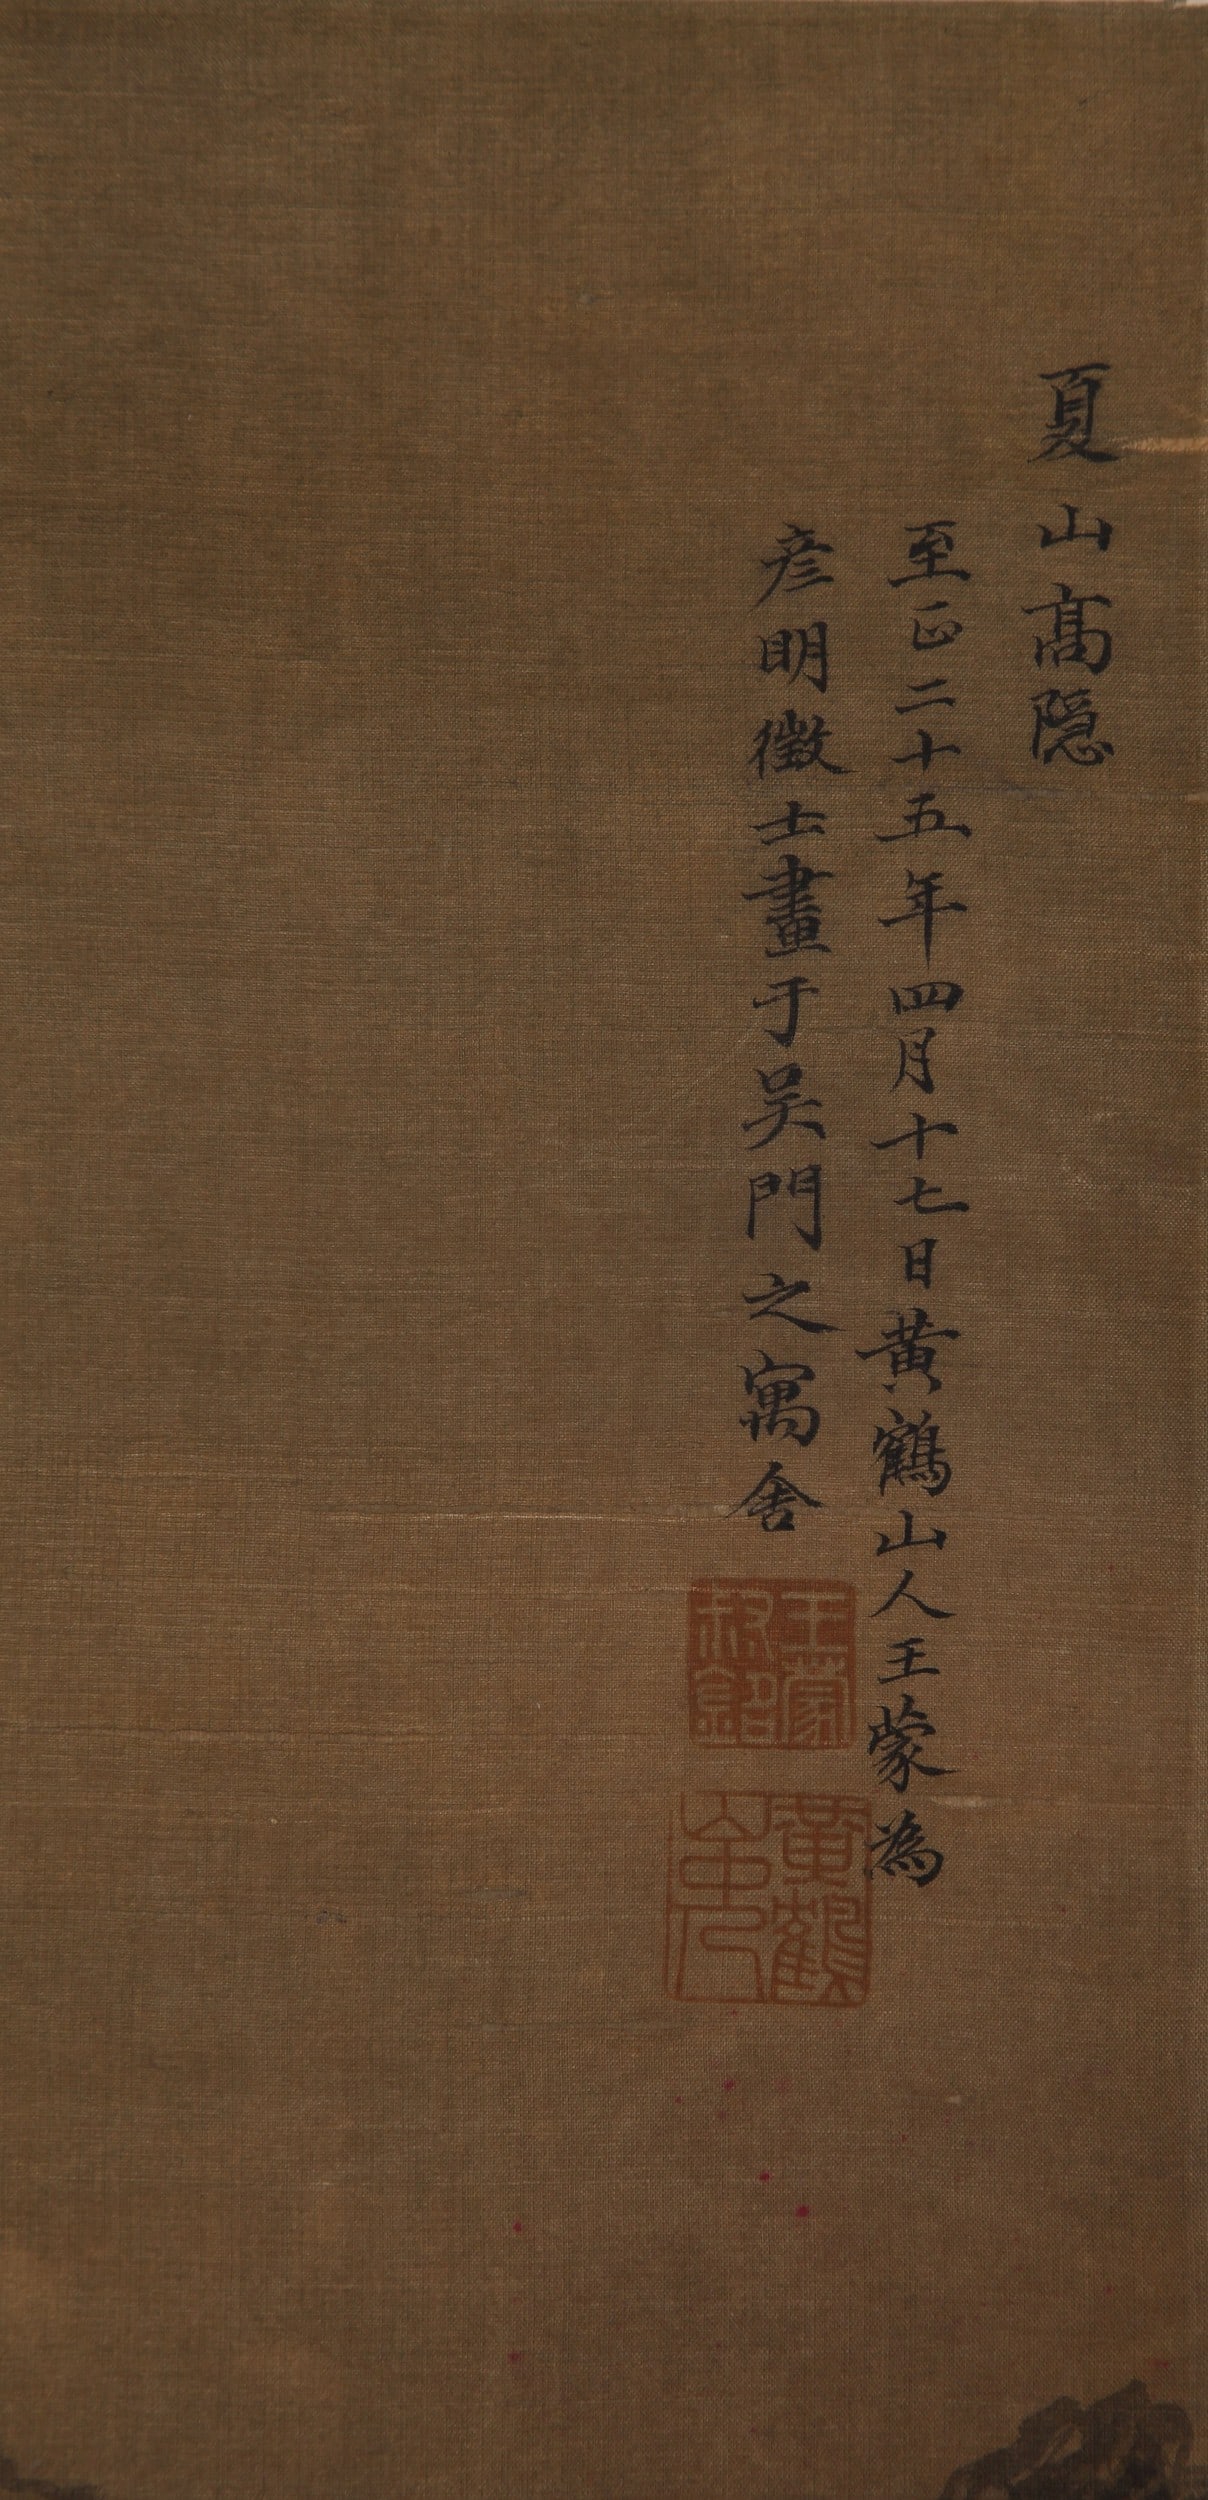 夏山高隐
至正二十五年四月十七日黄鶴山人王蒙為
彦明徵士畫于吴門之寓舍
王蒙
叔銘
黄鶴
山中人